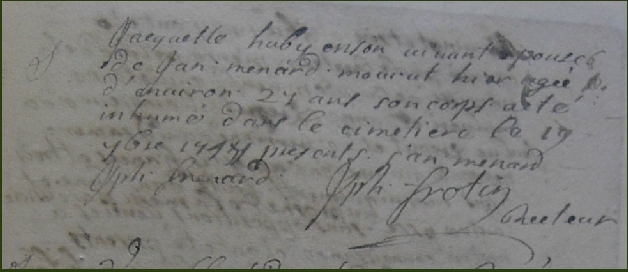 S Jacquette huby enson vivant epouse
de Jan menard mourut hier agée
d'environ 27 ans son corps a eté
inhumé dans le cimetiere le 19
presents jan menard
Jph menard Jph Grotin
Recteur